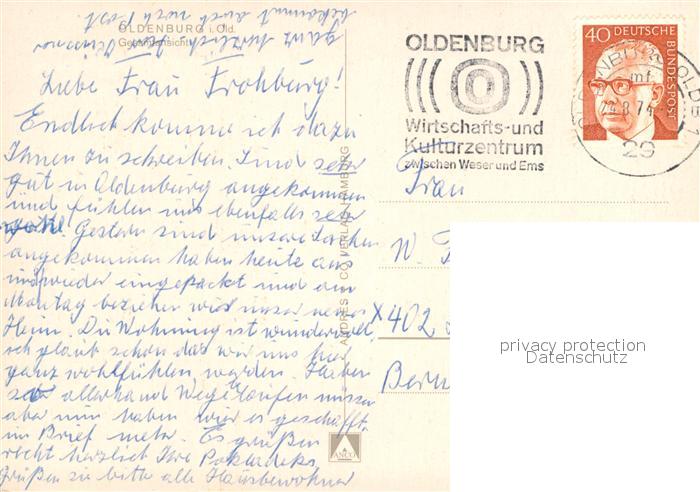 OLDENBURG i. Old.
Gesamtansicht
bekommt auch noch Post
ganz herzlich
Liebe Frau Frohburg!
Endlich komme ich dazu
Ihnen zu schreiben. Sind sehr
gut in Oldenburg angekommen
und fühlen uns ebenfalls sehr
wohl. Gestern sind unsere Sachen
angekommen haben heute aus
und wieder eingepackt und am
Montag beziehen wir unser neues
Heim. Die Wohnung ist wundervoll
ich glaub schon das wir uns hier
ganz wohlfühlen werden. Haben
so allerhand Wege laufen müssen
aber nun haben wir es geschafft.
im Brief mehr. Es grüßen
recht herzlich Ihre Pokladeks
Grüßen sie bitte alle Hausbewohner
ANDRES + CO VERLAG HAMBURG
ANCO
OLDENBURG
Wirtschafts-und
Kulturzentrum
zwischen Weser und Ems
40 DEUTSCHE
BUNDESPOST
29
Frau
W. F
X402
Bern
privacy protection
Datenschutz